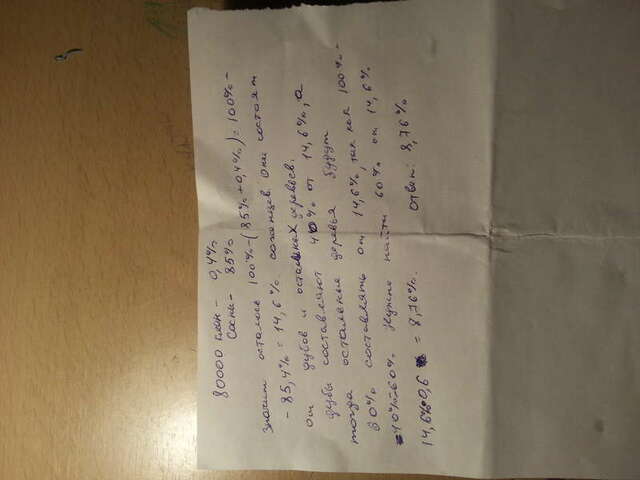 80000 клён - 0,4%
Сосна - 85%
Значит осталось 100%-(85%+0,4%)=100%-
- 85,4% = 14,6% саженцев. Они состоят
от дубов и остальных деревьев.
дубы составляют 40% от 14,6%, а
тогда остальные деревья будут
60% составлять от 14,6%, так как 100%-
-40%=60% Нужно найти 60% от 14,6%
14,6%·0,6 = 8,76%. Ответ: 8,76%